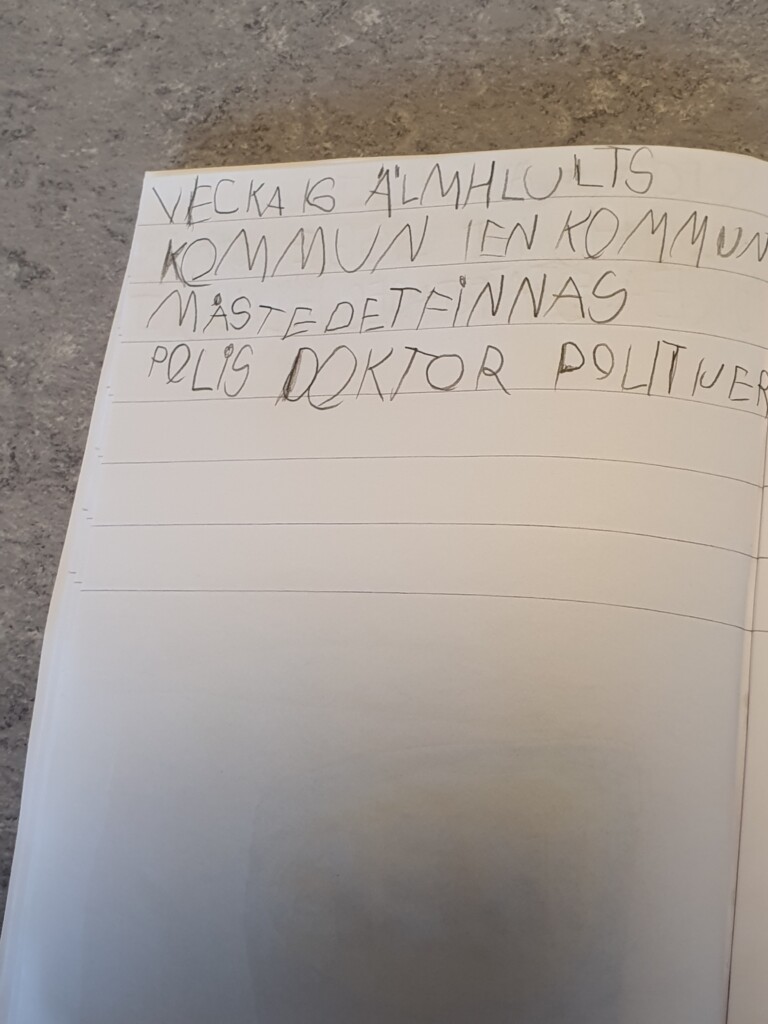 VECKA 16 ÄLMHLULTS
KOMMUN IEN KOMMUN
MÅSTEDETFINNAS
POLIS DOKTOR POLITIUER